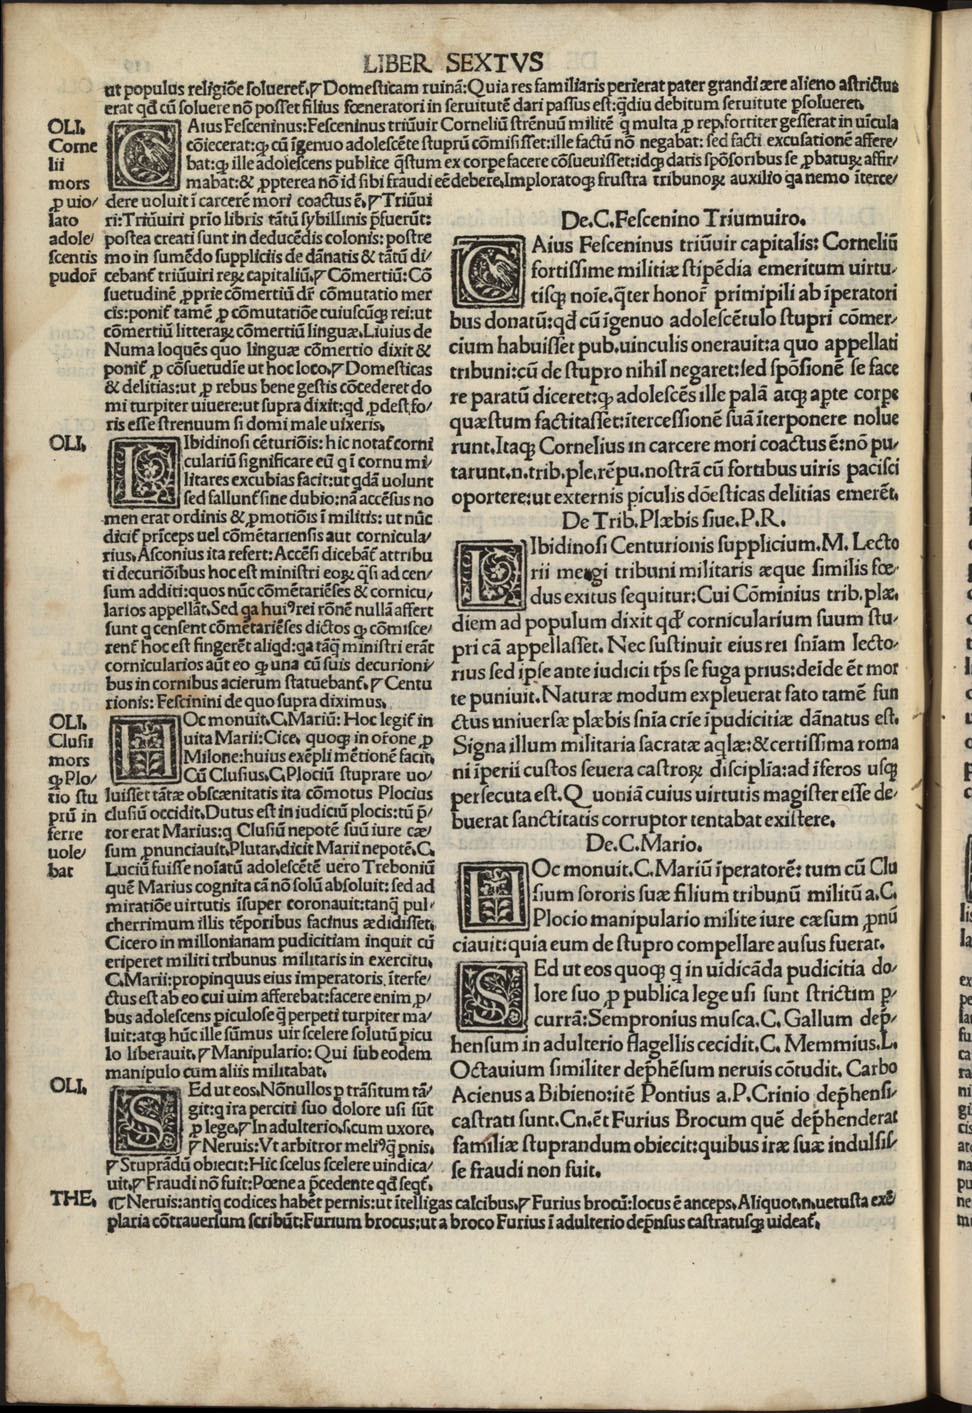 LIBER SEXTVS
ut populus religiõe solueret᷒.⁋Domesticam ruinã: Quia res familiaris perierat pater grandi ære alieno astrictus
erat qđ cũ soluere nõ posset filius fœneratori in seruitutẽ dari passus est: q̃diu debitum seruitute ꝑsolueret.
OLI.
Corne
lii
mors
ꝓ uio/
lato
adole/
scentis
pudor᷒
CAius Fesceninus: Fesceninus triũuir Corneliũ strẽnuũ militẽ q̃ multa ꝓ rep. fortiter gesserat in uĩcula
cõiecerat: ꝙ cũ ĩgenuo adolescẽte stuprũ cõmisisset: ille factũ nõ negabat: sed facti excusationẽ affere/
bat: ꝙ ille adolescens publice q̃stum ex corpe facere cõsueuisset: idꝙ datis spõsoribus se ꝓbaturꝫ affir/
mabat: & ꝓpterea nõ id sibi fraudi eẽ debere. Imploratoꝙ frustra tribunoꝝ auxilio q̃a nemo ĩterce/
dere uoluit ĩ carcerẽ mori coactus ẽ.⁋Triũui
ri: Triũuiri prĩo libris tãtũ sybillinis p̃fuerũt:
postea creati sunt in deducẽdis colonis: postre
mo in sumẽdo suppliciis de dãnatis & tãtũ di/
cebant᷒ triũuiri reꝝ capitaliũ.⁋Cõmertiũ: Cõ
suetudinẽ ꝓprie cõmertiũ dr᷒ cõmutatio mer
cis: ponit᷒ tamẽ ꝓ cõmutatiõe cuiuscũꝙ rei: ut
cõmertiũ litteraꝝ cõmertiũ linguæ. Liuius de
Numa loquẽs quo linguæ cõmertio dixit &
ponit᷒ ꝓ cõsuetudĩe ut hoc loco.⁋Domesticas
& delitias: ut ꝓ rebus bene gestis cõcederet do
mi turpiter uiuere: ut supra dixit: qđ ꝓdest fo/
ris esse strenuum si domi male uixeris.
OLI.
LIbidinosi cẽturiõis: hic notat᷒ corni
culariũ significare eũ q̃ ĩ cornu mi/
litares excubias facit: ut q̃dã uolunt
sed fallunt᷒ sine dubio: nã accẽsus no
men erat ordinis & ꝓmotiõis ĩ militis: ut nũc
dicit᷒ prĩceps uel cõmẽtariensis aut cornicula/
rius. Asconius ita refert: Accẽsi dicebãt᷒ attribu
ti decuriõibus hoc est ministri eoꝝ q̃si ad cen/
sum additi: quos nũc cõmẽtariẽses & cornicu/
larios appellãt. Sed q̃a huiꝰ rei rõnẽ nullã affert
sunt q censent cõmẽtariẽses dictos ꝙ cõmisce/
rent᷒ hoc est fingerẽt aliqđ: q̃a tãq̃ ministri erãt
cornicularios aũt eo ꝙ una cũ suis decurioni/
bus in cornibus acierum statuebant᷒.⁋Centu
rionis: Fescinini de quo supra diximus.
OLI.
Clusii
mors
q̃ Plo/
tio stu
prũ in
ferre
uole/
bat
HOc monuit. C. Mariũ: Hoc legit᷒ in
uita Marii: Cice. quoꝙ in or᷒one ꝓ
Milone: huius exẽpli mẽtionẽ facit.
Cũ Clusius. C. Plociũ stuprare uo/
luisset tãtæ obscænitatis ita cõmotus Plocius
clusiũ occidit. Dutus est in iudiciũ plocis: tũ p̃/
tor erat Marius: q̃ Clusiũ nepotẽ suũ iure cæ/
sum ꝓnunciauit. Plutar. dicit Marii nepotẽ. C.
Luciũ fuisse noĩatũ adolescẽtẽ uero Treboniũ
quẽ Marius cognita cã nõ solũ absoluit: sed ad
miratiõe uirtutis ĩsuper coronauit: tanq̃ pul/
cherrimum illis tẽporibus facinus ædidisset.
Cicero in millonianam pudicitiam inquit cũ
eriperet militi tribunus militaris in exercitu.
C. Marii: propinquus eius imperatoris. ĩterfe/
ctus est ab eo cui uim afferebat: facere enim ꝓ/
bus adolescens piculose q̃ perpeti turpiter ma/
luit: atꝙ hũc ille sũmus uir scelere solutũ picu
lo liberauit.⁋Manipulario: Qui sub eodem
manipulo cum aliis militabat.
OLI.
SEd ut eos. Nõnullos ꝑ trãsitum tã/
git: q ira perciti suo dolore usi sũt
ꝓ lege.⁋In adulterio. s. cum uxore.
⁋Neruis: Vt arbitror meliꝰ q̃ pnis.
⁋Stuprãdũ obiecit: Hic scelus scelere uindica/
uit.⁋Fraudi nõ fuit: Pœne a p̃cedente qđ seqt᷒.
De. C. Fescenino Triumuiro.
CAius Fesceninus triũuir capitalis: Corneliũ
fortissime militiæ stipẽdia emeritum uirtu/
tisꝙ noĩe. q̃ter honor᷒ primipili ab ĩperatori
bus donatũ: qđ cũ ĩgenuo adolescẽtulo stupri cõmer/
cium habuisset pub. uinculis onerauit: a quo appellati
tribuni: cũ de stupro nihil negaret: sed spõsionẽ se face
re paratũ diceret: ꝙ adolescẽs ille palã atꝙ apte corpe
quæstum factitasset: ĩtercessionẽ suã ĩterponere nolue
runt. Itaꝙ Cornelius in carcere mori coactus ẽ: nõ pu/
tarunt. n. trib. ple. rẽpu. nostrã cũ fortibus uiris pacisci
oportere: ut externis piculis dõesticas delitias emerẽt.
De Trib. Plæbis siue. P. R.
LIbidinosi Centurionis supplicium. M. Lecto
rii mergi tribuni militaris æque similis fœ/
dus exitus sequitur: Cui Cõminius trib. plæ.
diem ad populum dixit qđ cornicularium suum stu/
pri cã appellasset. Nec sustinuit eius rei sñiam lecto/
rius sed ipse ante iudicii tp̃s se fuga prius: deide ẽt mor
te puniuit. Naturæ modum expleuerat fato tamẽ fun
ctus uniuersæ plæbis sñia crĩe ĩpudicitiæ dãnatus est.
Signa illum militaria sacratæ aq̃læ: & certissima roma
ni ĩperii custos seuera castroꝝ disciplĩa: ad ĩferos usꝙ
persecuta est. Q uoniã cuius uirtutis magister esse de/
buerat sanctitatis corruptor tentabat existere.
De. C. Mario.
HOc monuit. C. Mariũ ĩperatorẽ: tum cũ Clu
sium sororis suæ filium tribunũ militũ a. C.
Plocio manipulario milite iure cæsum ꝓnũ
ciauit: quia eum de stupro compellare ausus fuerat.
SEd ut eos quoꝙ q̃ in uidicãda pudicitia do/
lore suo ꝓ publica lege usi sunt strictim ꝑ/
currã: Sempronius musca. C. Gallum dep̃/
hensum in adulterio flagellis cecidit. C. Memmius. L.
Octauium similiter dep̃hẽsum neruis cõtudit. Carbo
Acienus a Bibieno: itẽ Pontius a. P. Crinio dep̃hensi/
castrati sunt. Cn. ẽt Furius Brocum quẽ dep̃henderat
familiæ stuprandum obiecit: quibus iræ suæ indulsis/
se fraudi non fuit.
THE.
⁋Neruis: antiq̃ codices habẽt pernis: ut ĩtelligas calcibus.⁋Furius brocũ: locus ẽ anceps. Aliquot. n. uetusta exẽ
plaria cõtrauersum scribũt: Furium brocus: ut a broco Furius ĩ adulterio dep̃nsus castratusꝙ uideat᷒.